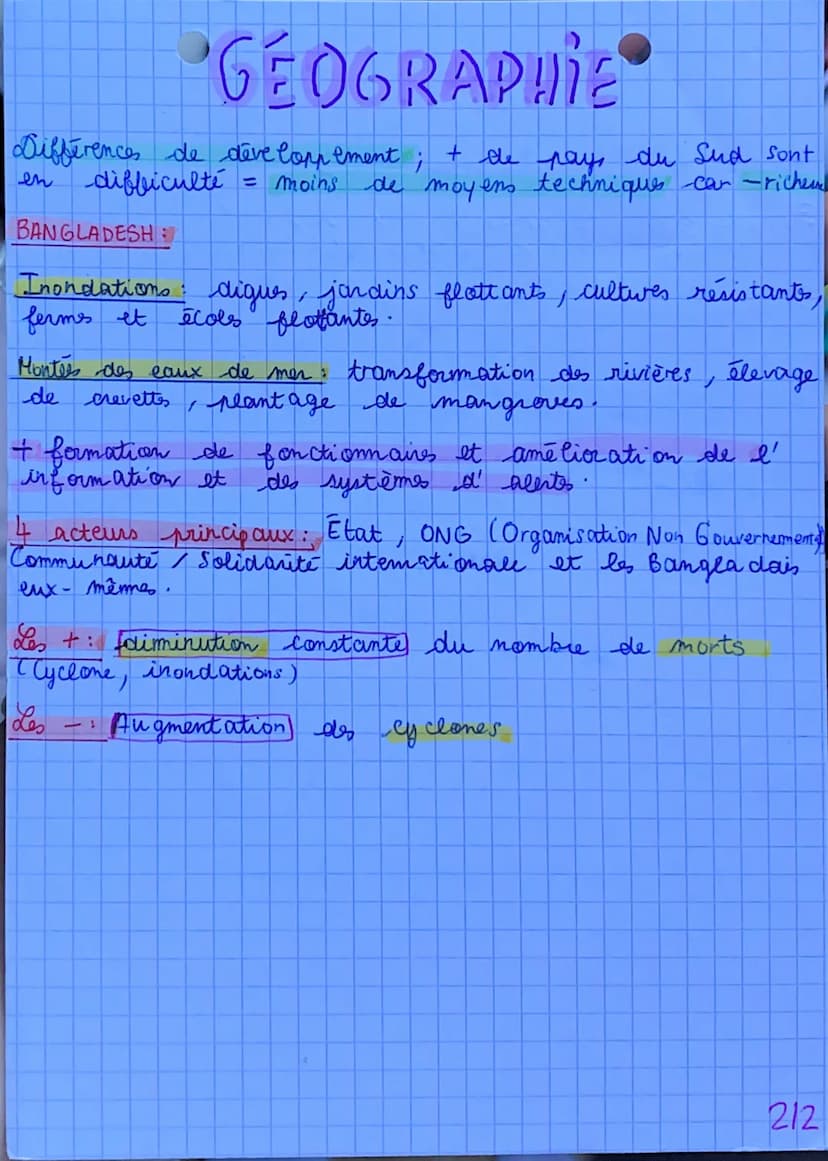 GÉOGRAPHIE
Différences de développement ; + de pays du Sud sont
en difficulté = moins de moyens technique car -riches
BANGLADESH :
Inondations : digues, jardins flottants, cultures résistantes,
fermes et écoles flottantes.
Montées des eaux de mer : transformation des rivières, élevage
de crevettes, plantage de mangroves.
+ formation de fonctionnaires et amélioration de l'
information et des systèmes d'alertes.
4 acteurs principaux : État, ONG (Organisation Non Gouvernemental)
Communauté / Solidarité internationale et les Bangladais
eux-mêmes.
Les + : diminution constante du nombre de morts
(Cyclone, inondations)
Les - : Augmentation des cyclones
2/2